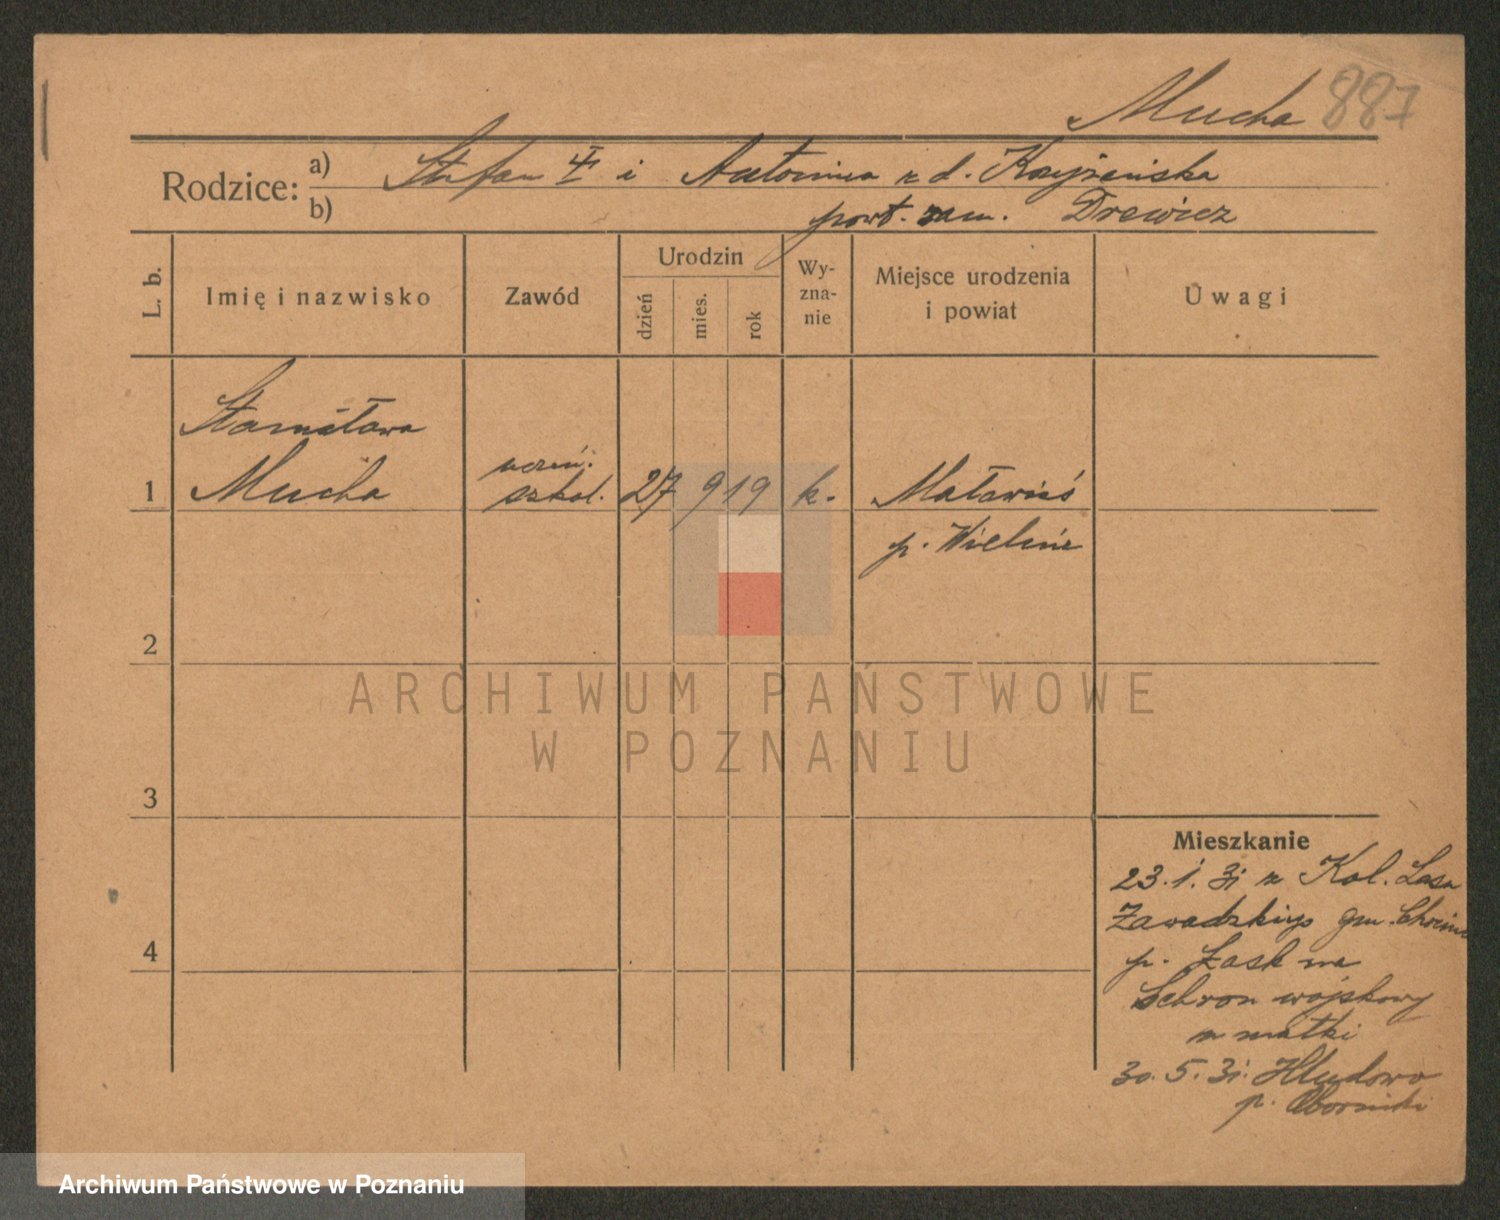 Mucha 887
Rodzice: a) Stefan i Antonina z d. Krzyżańska
b) powt. zam. Drewicz
L. b. Imię i nazwisko Zawód Urodzin dzień mies. rok Wy-zna-nie Miejsce urodzenia i powiat Uwagi
Stanisława
1 Mucha uczeń. szkol. 27 9 19 k. Maławieś
p. Wieluń
2
3
Mieszkanie
23.1.31 z Kol. Lasu
Zawadzkiego gm.
4
p. Łask na
Schron wojskowy
z matki
30.5.31. Chludowo
p. Oborniki
ARCHIWUM PAŃSTWOWE
W POZNANIU
Archiwum Państwowe w Poznaniu